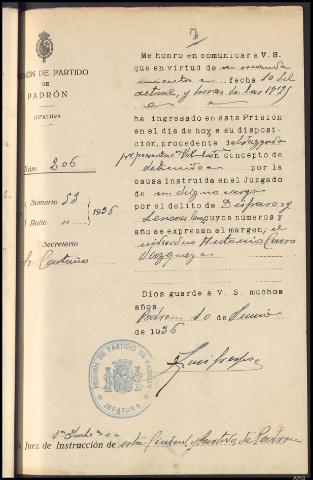 7
PRISIÓN DE PARTIDO
DE
PADRÓN
JEFATURA
Núm. 206
Sumario 53
Rollo " 1936
Secretario
Sr. Castaño
Me honro en comunicar a V. S.
que en virtud de su manda
miento fecha 10 del
actual, y horas de las 18'25
ha ingresado en esta Prisión
en el día de hoy a su disposi-
ción, procedente del Juzgado
en concepto de
detenido por la
causa instruida en el Juzgado
de su digno cargo
por el delito de Disparo y
Lesiones cuyos números y
año se expresan al margen, el
individuo Antonio Carro
Vazquez
Dios guarde a V. S. muchos
años.
Padron 10 de Junio
de 1936
PRISION DE PARTIDO DE PADRON
JEFATURA
Sr. Juez de Instrucción de esta Ciudad y Partido de Padron